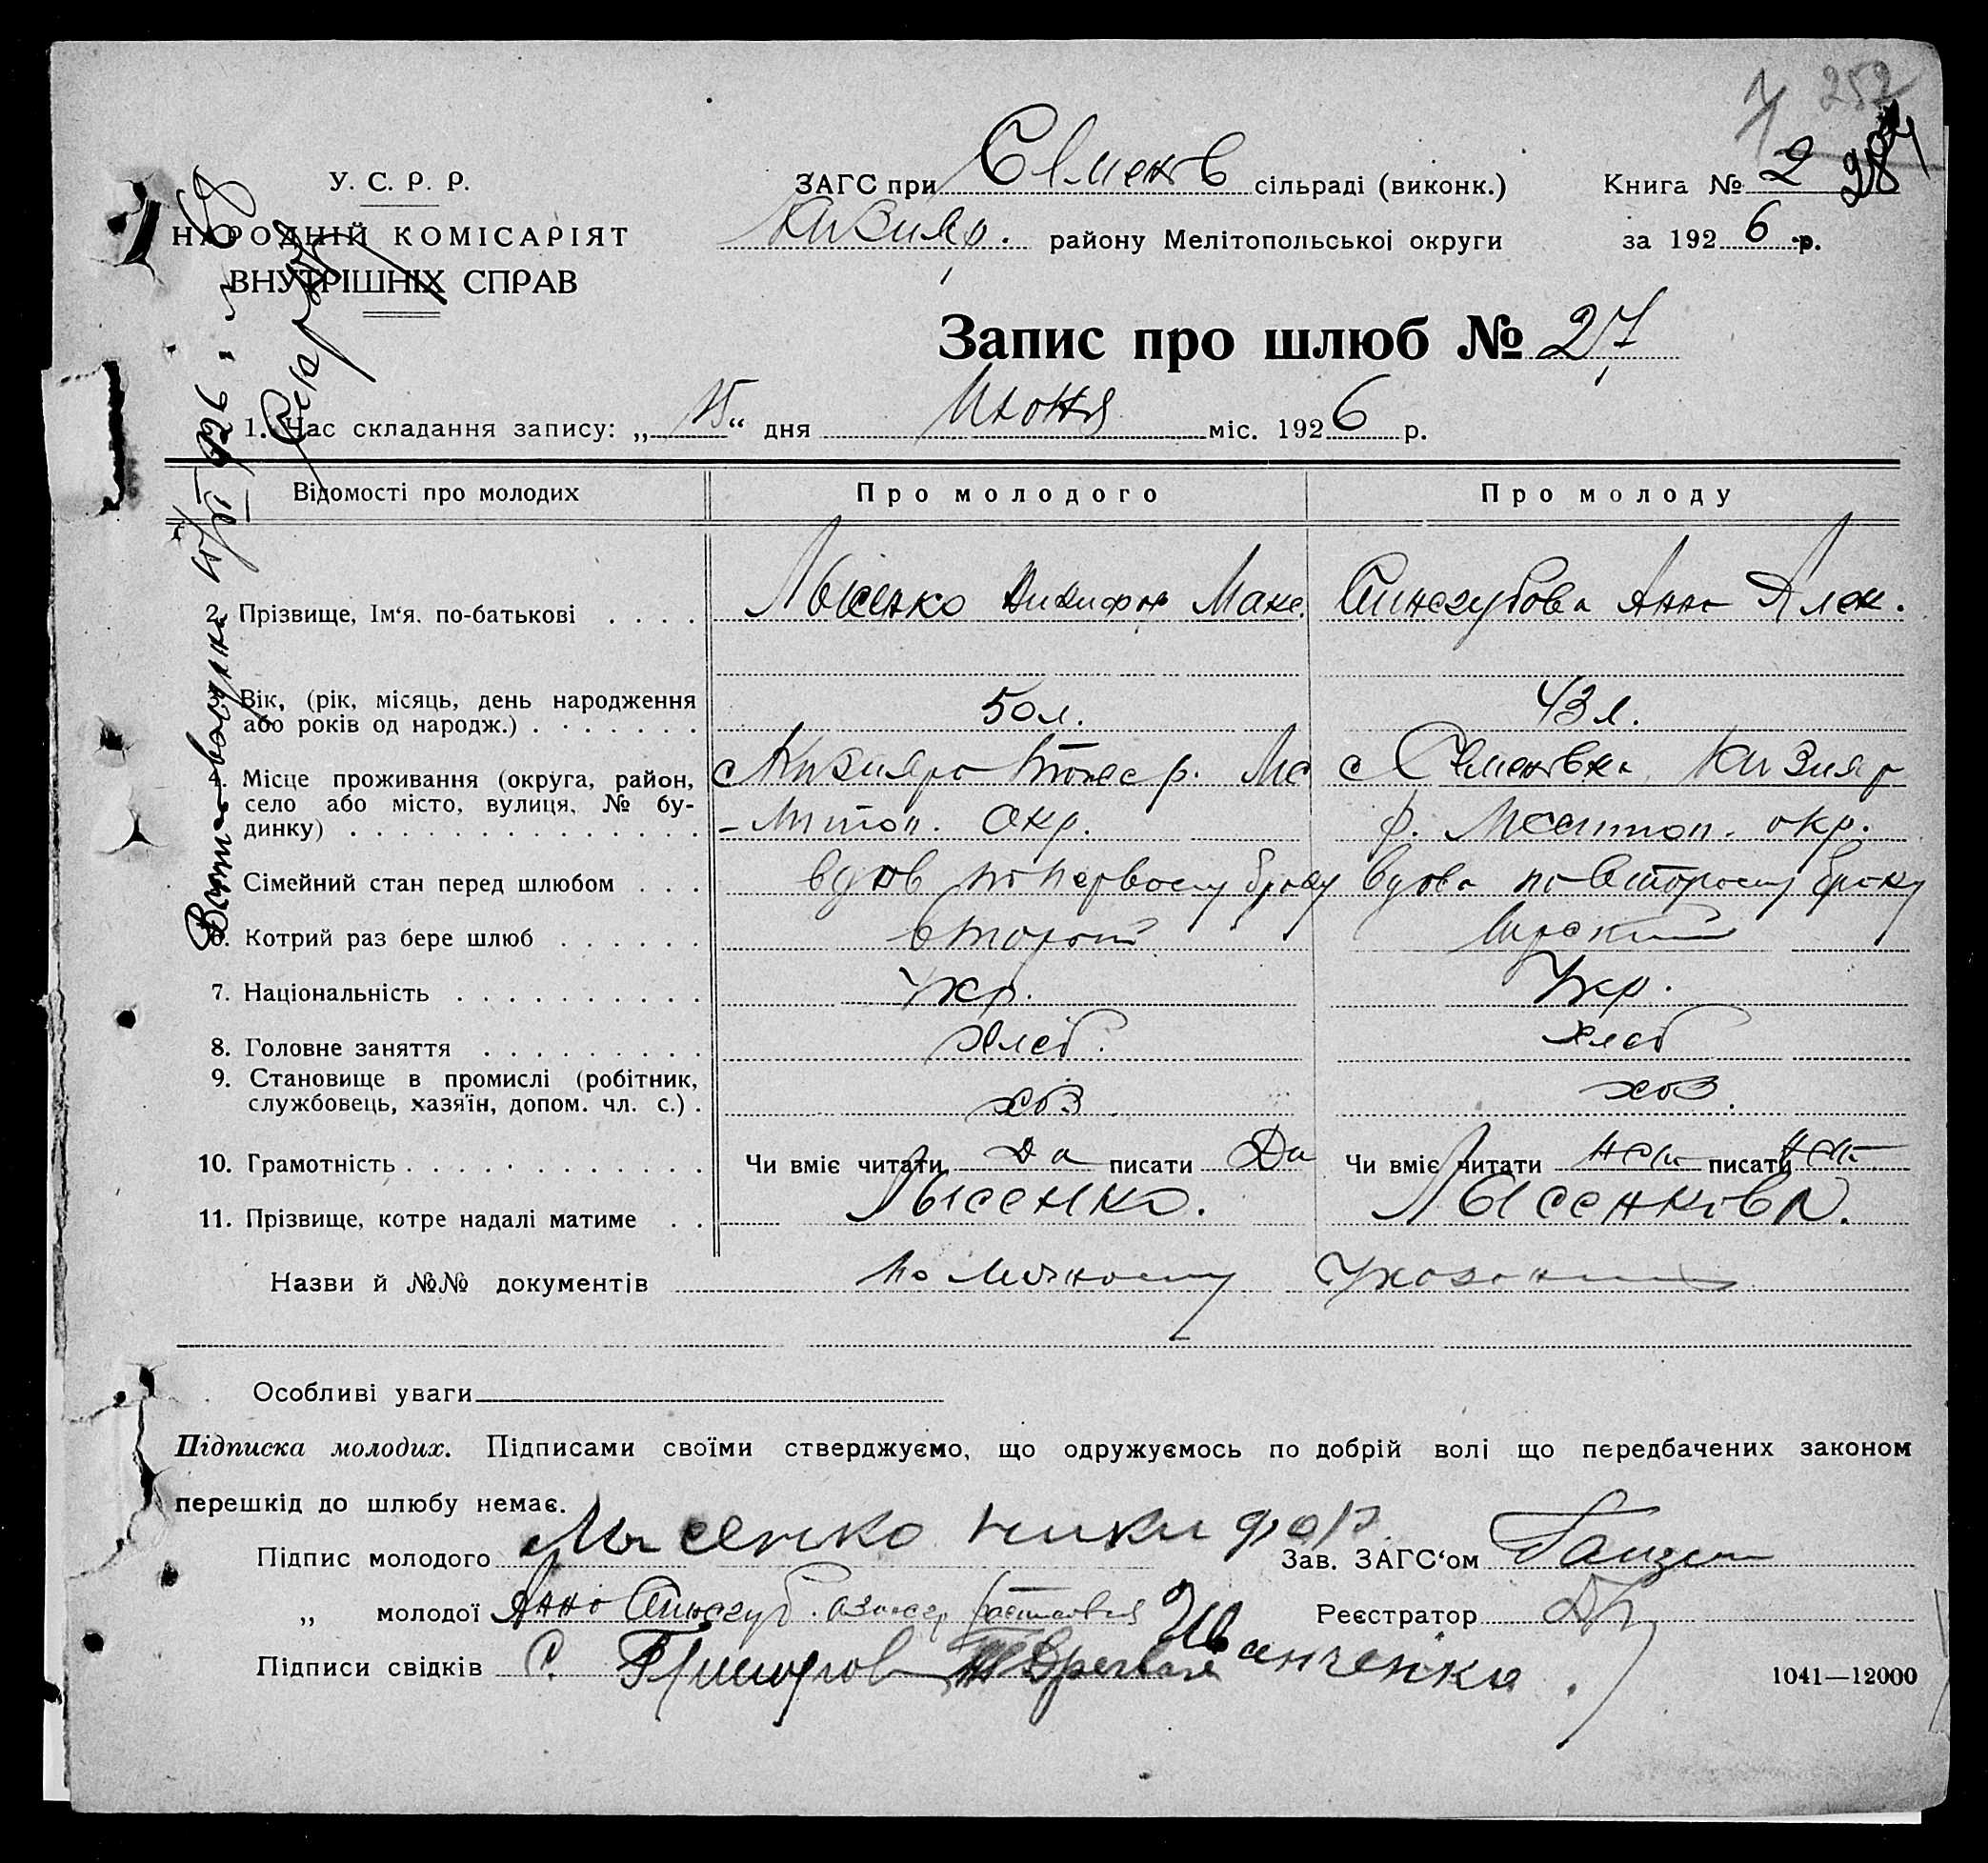 252
У. С. Р. Р.
НАРОДНІЙ КОМІСАРІЯТ
ВНУТРІШНІХ СПРАВ
ЗАГС при Семенов сільраді (виконк.) Книга № 2
Кизияр. району Мелітопольської округи за 1926 р.
Запис про шлюб № 27
1. Час складання запису: „15“ дня Июня міс. 1926 р.
Відомості про молодих Про молодого Про молоду
2. Прізвище, Ім‘я, по-батькові Лысенко Никифор Макс. Синегубова Анна Алек.
Вік, (рік, місяць, день народження
або років од народж.) 50 л. 43 л.
4. Місце проживання (округа, район, с Кизияра р. Ме с Семеновка Кизияр
село або місто, вулиця, № бу-
динку) -литоп. Окр. р. Мелитоп. окр.
Сімейний стан перед шлюбом вдов по первому браку вдова по второму браку
6. Котрий раз бере шлюб второй
7. Національність Укр. Укр.
8. Головне заняття Хлеб. хлеб
9. Становище в промислі (робітник,
службовець, хазяїн, допом. чл. с.) хоз хоз.
10. Грамотність Чи вміє читати да писати Да Чи вміє читати нет писати нет
11. Прізвище, котре надалі матиме Лысенко. Лысенкова.
Назви й №№ документів по личному
Особливі уваги
Підписка молодих. Підписами своїми стверджуємо, що одружуємось по добрій волі що передбачених законом
перешкід до шлюбу немає.
Підпис молодого Лысенко никифор. Зав. ЗАГС‘ом
„ молодої Анна Синегуб. Реєстратор
Підписи свідків Иванченко
1041—12000